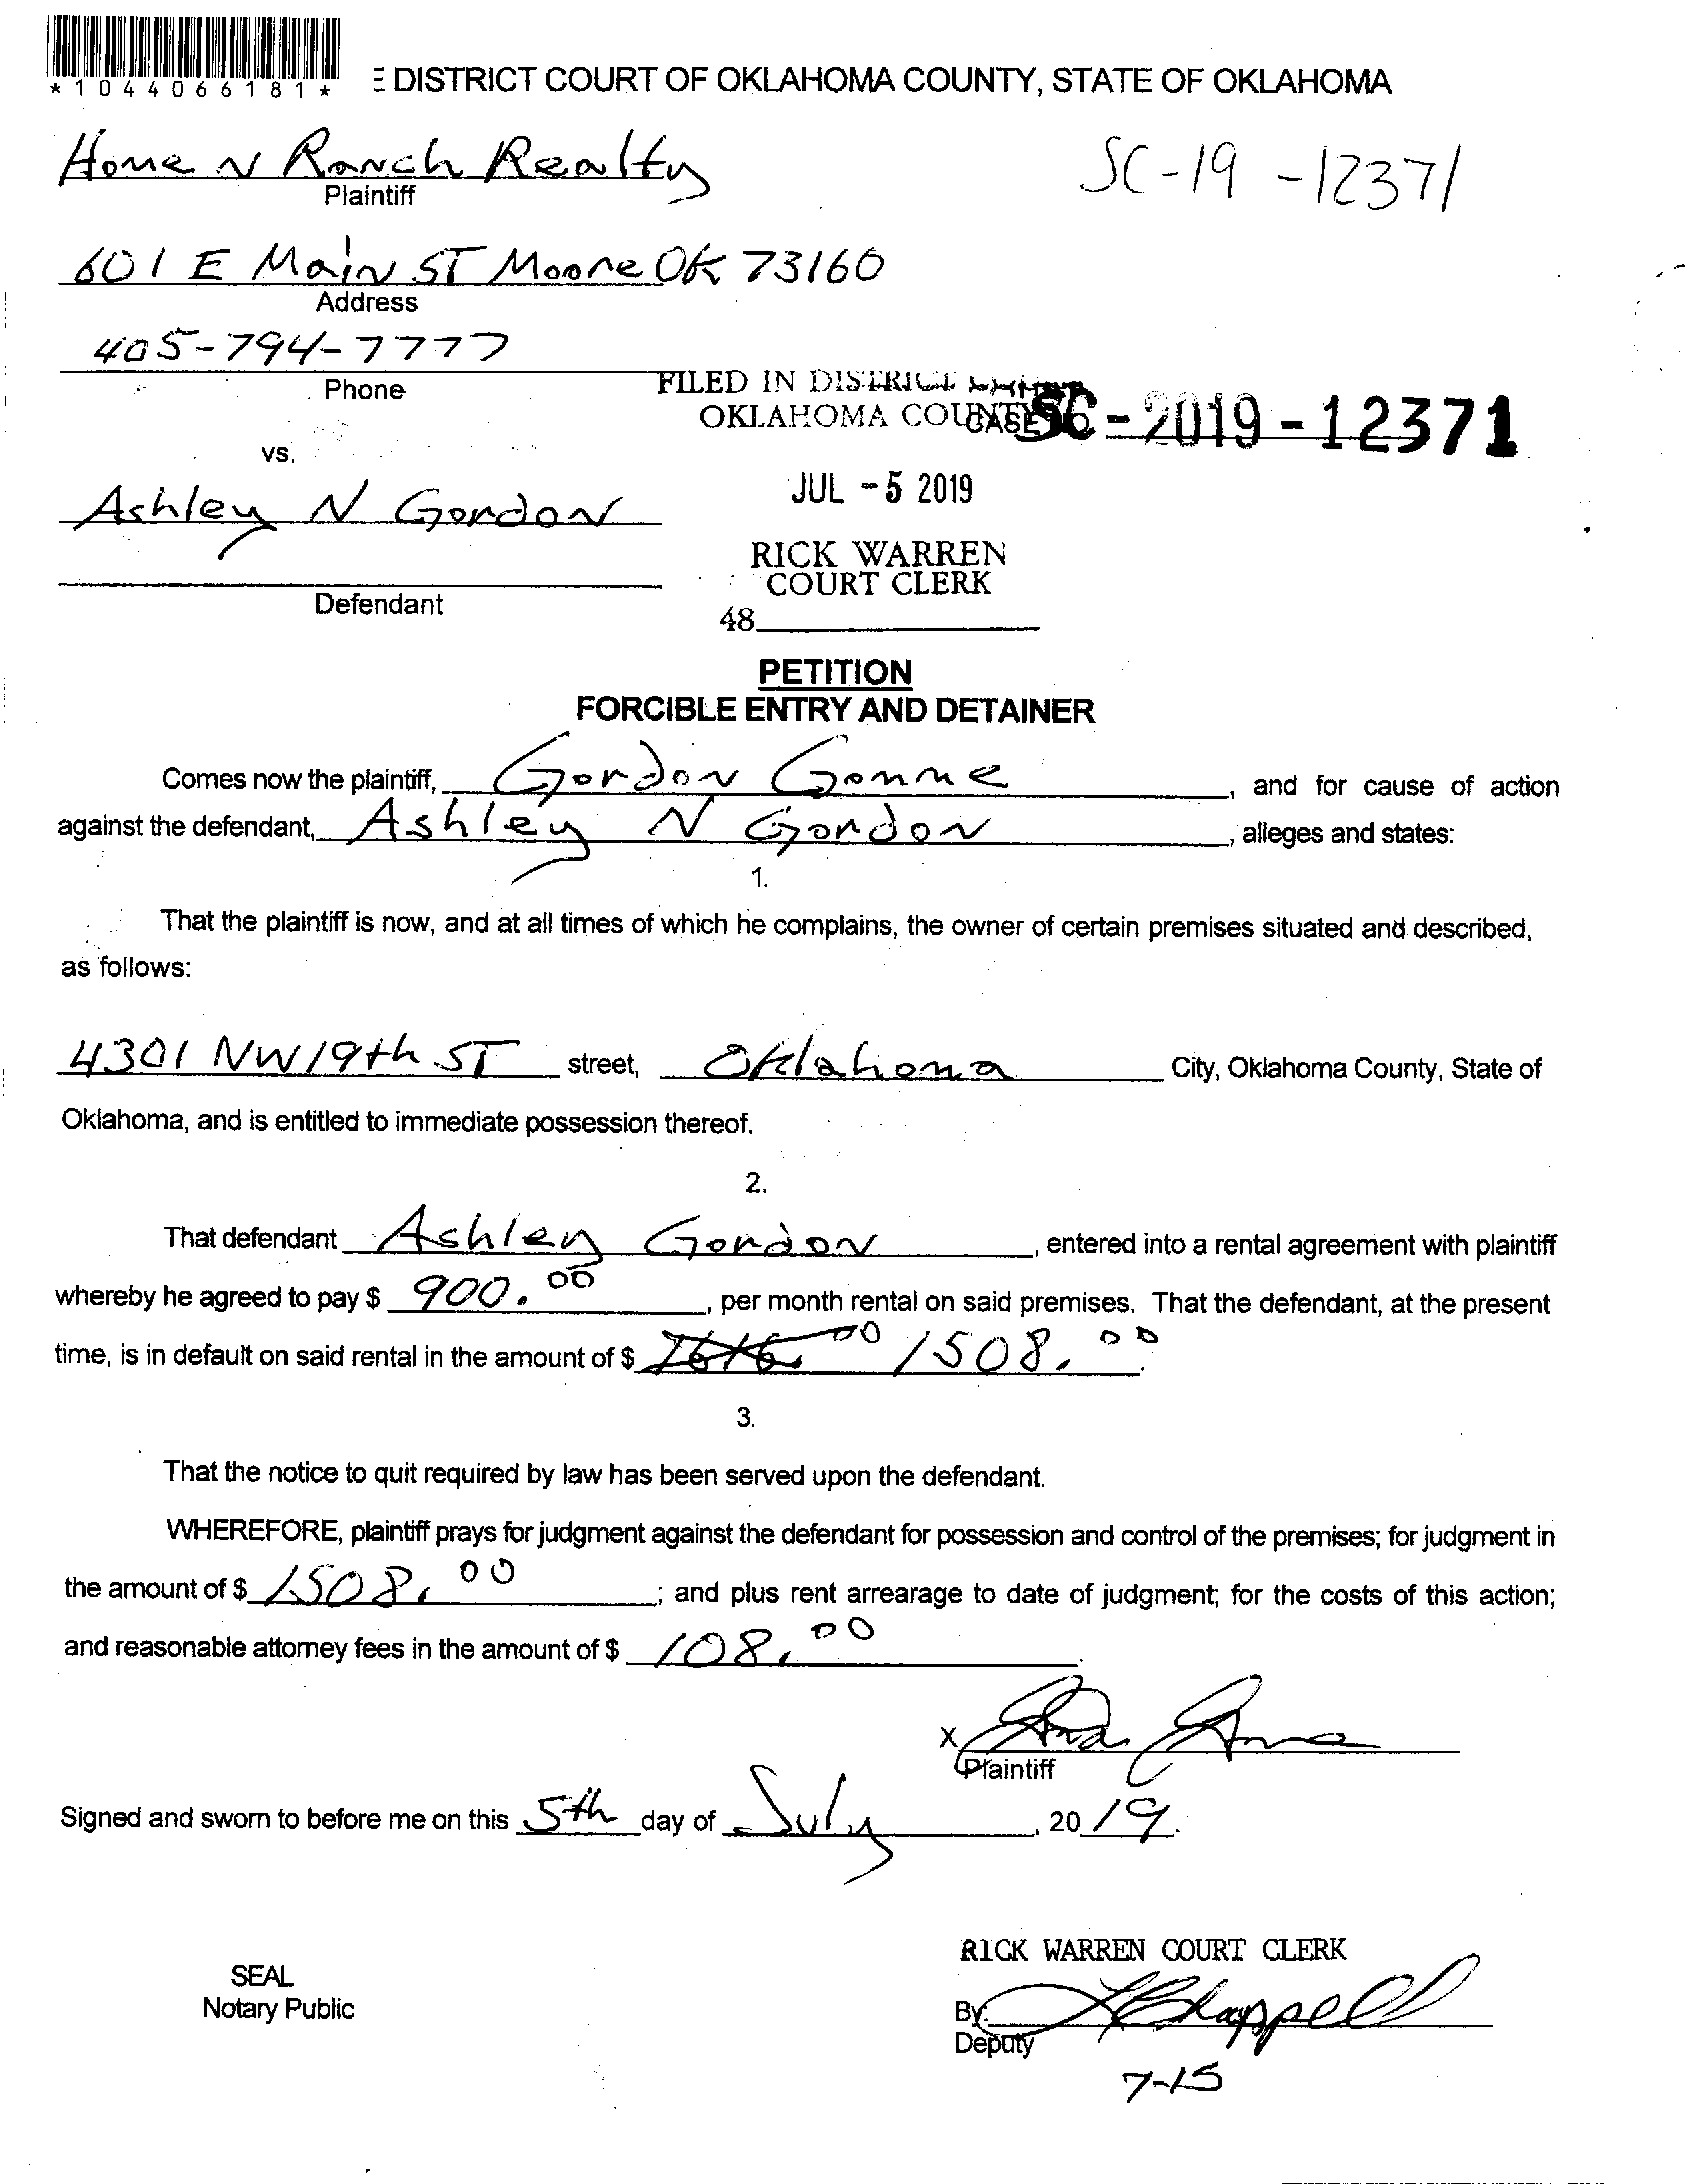 *1044066181*
E DISTRICT COURT OF OKLAHOMA COUNTY, STATE OF OKLAHOMA
Home N Ranch Realty
SC-19-12371
Plaintiff
601 E Main ST Moore OK 73160
Address
405-794-7777
Phone
FILED IN DISTRICT
OKLAHOMA COUNTY
CASE
SC-2019-12371
vs.
JUL -5 2019
Ashley N Gordon
RICK WARREN
COURT CLERK
Defendant
48
PETITION
FORCIBLE ENTRY AND DETAINER
Comes now the plaintiff, Gordon , and for cause of action
against the defendant, Ashley N Gordon , alleges and states:
1.
That the plaintiff is now, and at all times of which he complains, the owner of certain premises situated and described,
as follows:
4301 NW 19th ST street, Oklahoma City, Oklahoma County, State of
Oklahoma, and is entitled to immediate possession thereof.
2.
That defendant Ashley Gordon , entered into a rental agreement with plaintiff
whereby he agreed to pay $ 900.00 , per month rental on said premises. That the defendant, at the present
time, is in default on said rental in the amount of $ 1508.00.
3.
That the notice to quit required by law has been served upon the defendant.
WHEREFORE, plaintiff prays for judgment against the defendant for possession and control of the premises; for judgment in
the amount of $ 1508.00 ; and plus rent arrearage to date of judgment; for the costs of this action;
and reasonable attorney fees in the amount of $ 108.00.
X
Plaintiff
Signed and sworn to before me on this 5th day of July , 20 19.
RICK WARREN COURT CLERK
SEAL
Notary Public
By: Chappell
Deputy
7-15